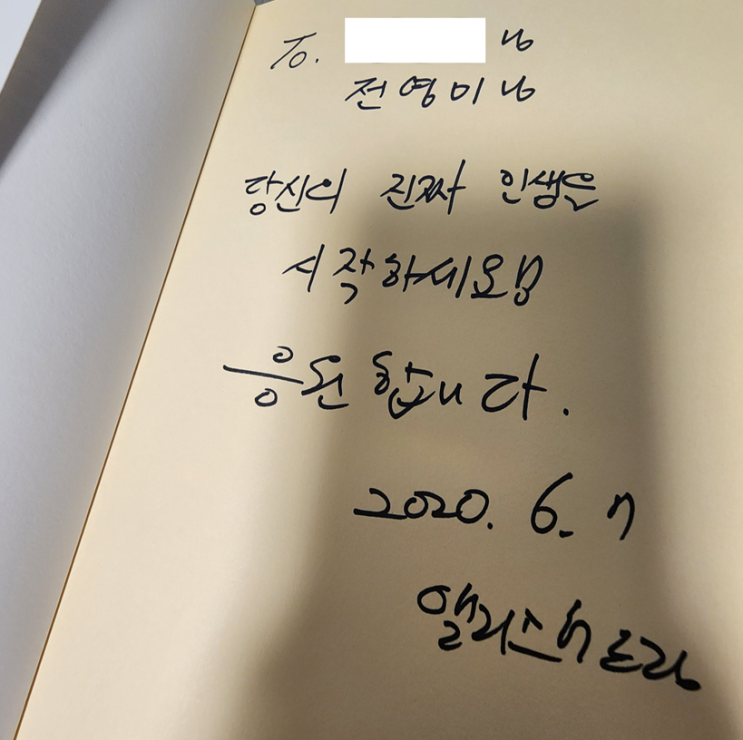 To. 님
전영미님
당신의 진짜 인생은
시작하세요
응원합니다.
2020. 6. 7